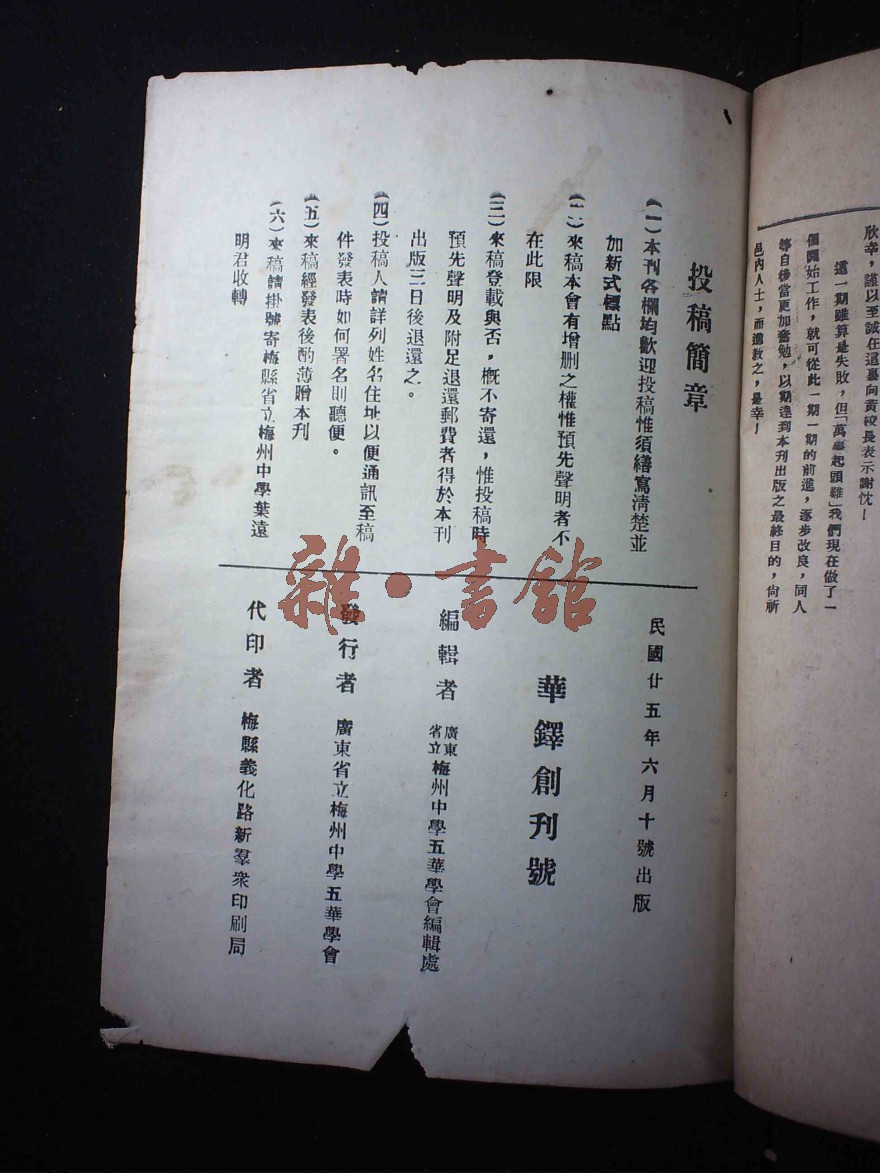 欣幸，謹以至誠在這裏向黃校長表示謝忱！
這一期雖算是失敗，但「萬事起頭難」我們現在做了一
個開始工作，就可從此一期一期的前進，逐步改良，同人
等自後當更加奮勉，以期達到本刊出版之最終目的，尙祈
邑內人士，而進敎之，是幸！
投稿簡章
（一）本刊各欄均歡迎投稿惟須繕寫淸楚並
加新式標點
（二）來稿本會有增删之權惟預先聲明者不
在此限
（三）來稿登載與否，槪不寄還，惟投稿時
預先聲明及附足退還郵費者得於本刊
出版三日後退還之。
（四）投稿人請詳列姓名住址以便通訊至稿
件發表時如何署名則聽便。
（五）來稿經發表後酌薄贈本刊
（六）來稿請掛號寄梅縣省立梅州中學葉遠
明君收轉
民國廿五年六月十號出版
華鐸創刊號
編輯者 廣東省立梅州中學五華學會編輯處
發行者 廣東省立梅州中學五華學會
代印者 梅縣義化路新羣衆印刷局
雜·書館